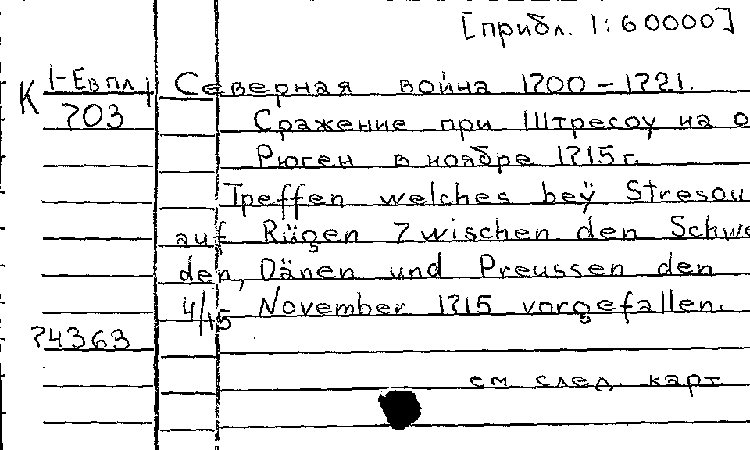 [прибл. 1:60000]
К 1-Евпл Северная война 1700 – 1721.
703 Сражение при Штресоу на о
Рюген в ноябре 1715 г.
Treffen welches beÿ Stresou
auf Rügen Zwischen den Schwe
den, Dänen und Preussen den
4/15 November 1715 vorgefallen.
74363
см след. карт